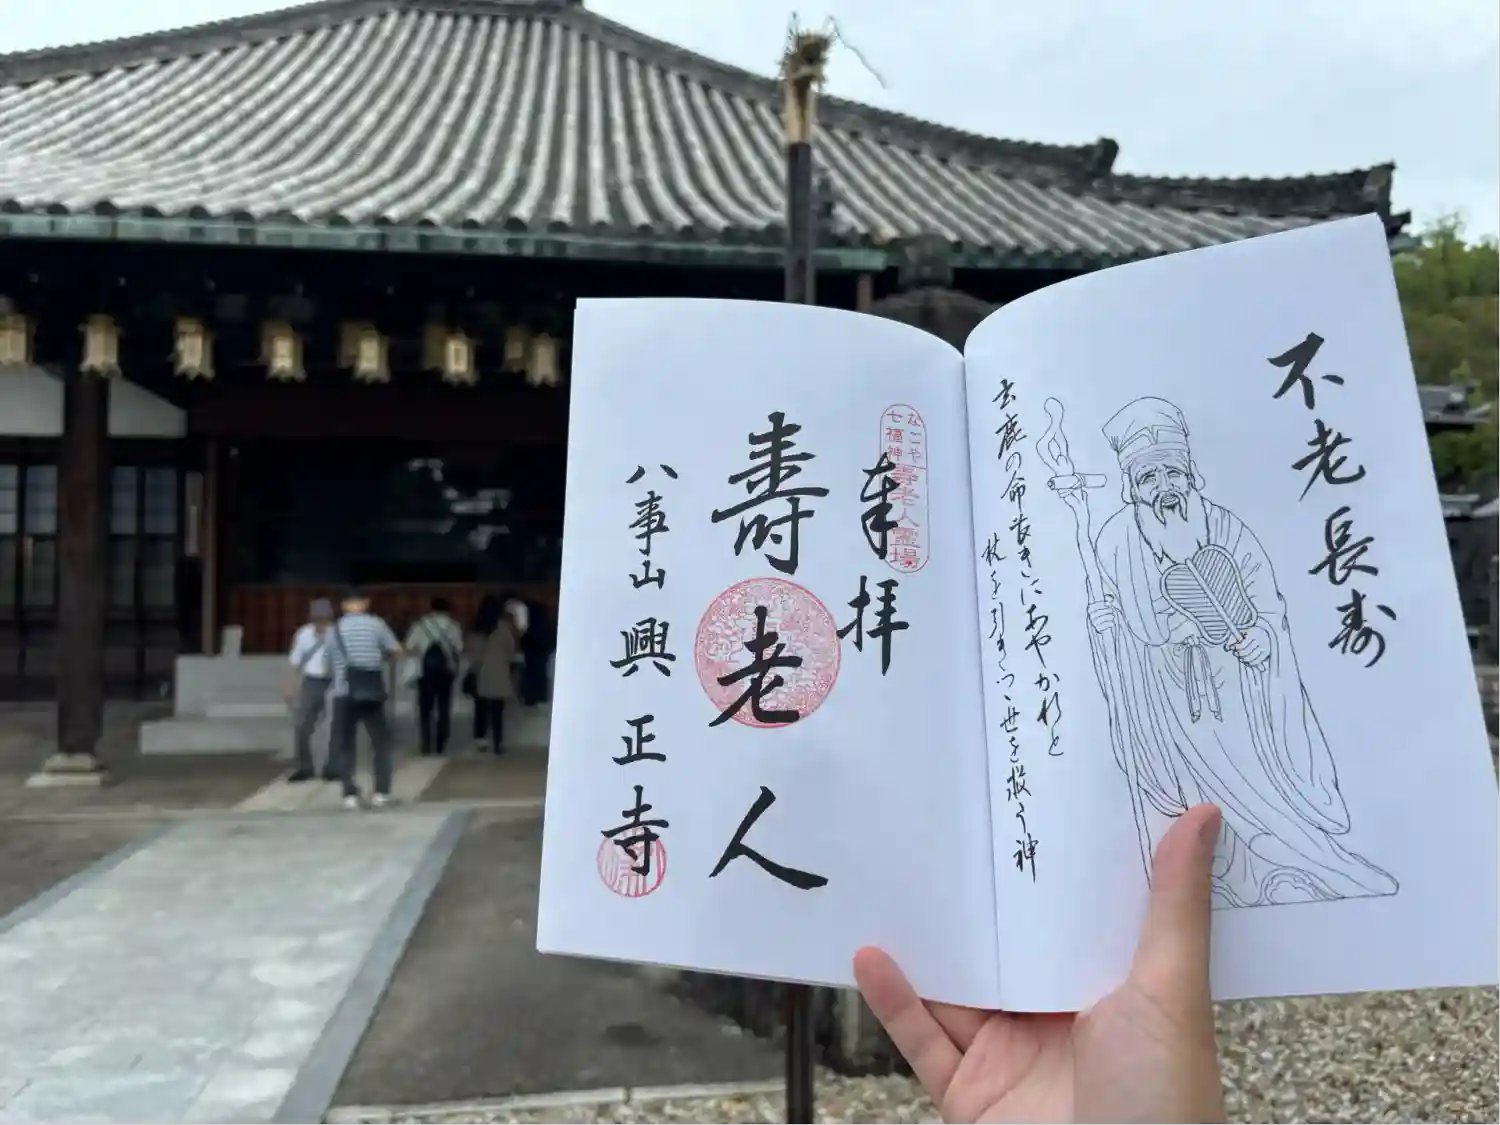 不老長寿
玄鹿の命長きにあやかれと
杖を引きつゝ世を救う神
なごや
七福神
寿老人霊場
奉拝
寿老人
八事山 興正寺